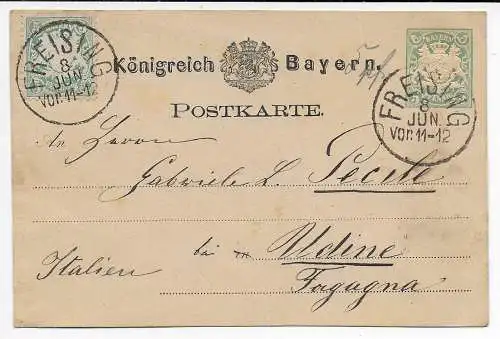 BAYERN
FREISING
8
JUN.
VOR.11-12
Königreich Bayern.
FREISING
8
JUN.
VOR.11-12
POSTKARTE.
An Herrn
Gabriele L. Pecile
bei in Udine
Italien Fagagna